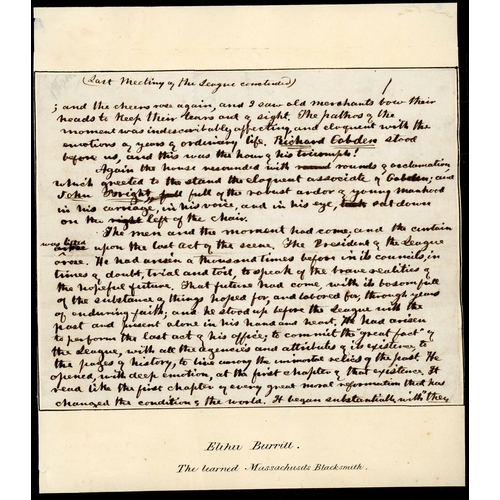 (Last Meeting of the League concluded) 1
; and the cheers rose again, and I saw old merchants bow their
heads to keep their tears out of sight. The pathos of the
moment was indescribably affecting, and eloquent with the
emotions of years of ordinary life. Richard Cobden stood
before us, and this was the hour of his triumph!
Again the house resounded with rounds of acclamation
which greeted to the stand the eloquent associate of Cobden; and
John Bright, full of the robust ardor of young manhood
in his carriage, in his voice, and in his eye, sat down
on the right left of the chair.
The men and the moment had come, and the curtain
was lifted upon the last act of the scene. The President of the League
arose. He had arisen a thousand times before in its councils, in
times of doubt, trial and toil, to speak of the brave realities of
the hopeful future. That future had come, with its bosom full
of the substance of things hoped for, and labored for, through years
of enduring faith; and he stood up before the League with the
past and present alone in his hand and heart. He had arisen
to perform the last act of his office; to commit the "great fact" of
the League, with all the agencies and attributes of its existence, to
the pages of history, to bind away the immortal relics of the past. He
opened, with deep emotion, at the first chapter of that existence. It
read like the first chapter of every great moral reformation that has
changed the condition of the world. It began substantially with "they
Elihu Burritt.
The learned Massachusetts Blacksmith.